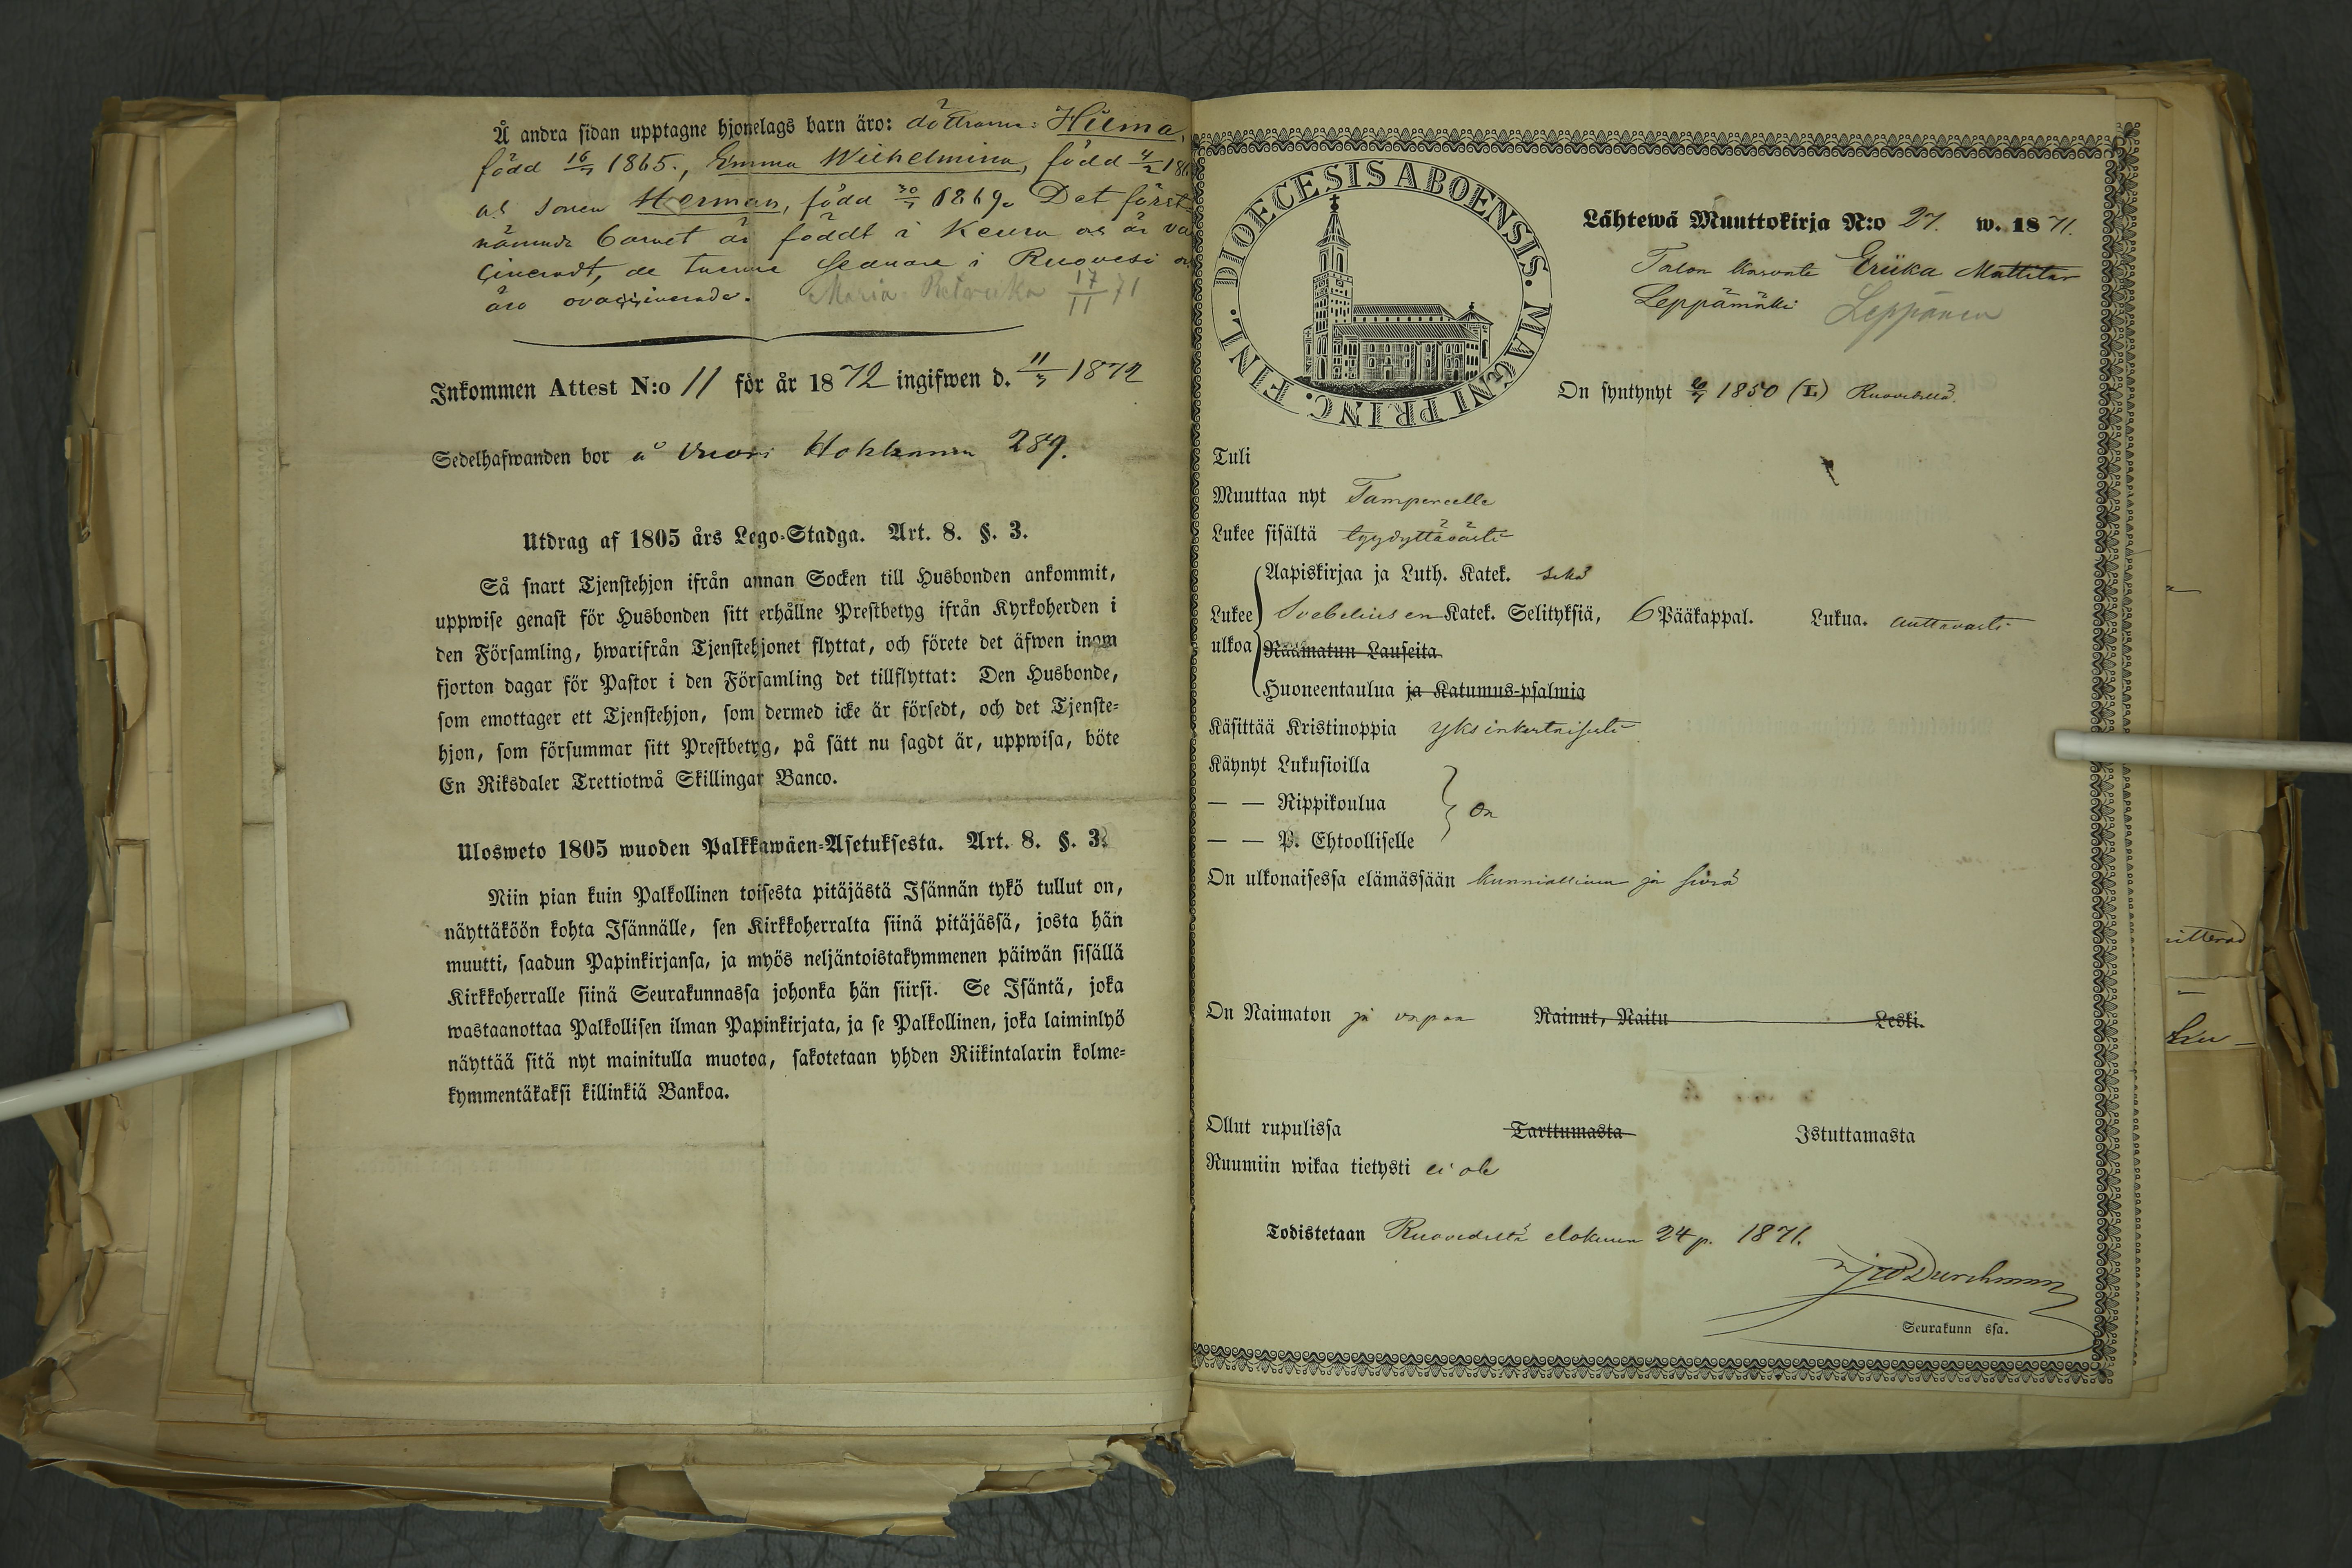 Å andra sidan upptagne hjonelags barn äro: döttrarne: Hilma,
född 16/7 1865., Emma Wilhelmina, född 4/2 18
och sonen Herman, född 30/7 1869. Det först-
nämnde barnet är föddt i Keuru och är vac-
cineradt, de tvenne sednare i Ruovesi och
äro ovaccinerade. Maria 17/11 71
Inkommen Attest N:o 11 för år 1872 ingifwen d. 11/3 1872
Sedelhafwanden bor å Vuori 289.
Utdrag af 1805 års Lego-Stadga. Art. 8. §. 3.
Så snart Tjenstehjon ifrån annan Socken till Husbonden ankommit,
uppwise genast för Husbonden sitt erhållne Prestbetyg ifrån Kyrkoherden i
den Församling, hwarifrån Tjenstehjonet flyttat, och förete det äfwen inom
fjorton dagar för Pastor i den Församling det tillflyttat: Den Husbonde,
som emottager ett Tjenstehjon, som dermed icke är försedt, och det Tjenste-
hjon, som försummar sitt Prestbetyg, på sätt nu sagdt är, uppwisa, böte
En Riksdaler Trettiotwå Skillingar Banco.
Ulosweto 1805 wuoden Palkkawäen-Asetuksesta. Art. 8. §. 3.
Niin pian kuin Palkollinen toisesta pitäjästä Isännän tykö tullut on,
näyttäköön kohta Isännälle, sen Kirkkoherralta siinä pitäjässä, josta hän
muutti, saadun Papinkirjansa, ja myös neljäntoistakymmenen päiwän sisällä
Kirkkoherralle siinä Seurakunnassa johonka hän siirsi. Se Isäntä, joka
wastaanottaa Palkollisen ilman Papinkirjata, ja se Palkollinen, joka laiminlyö
näyttää sitä nyt mainitulla muotoa, sakotetaan yhden Riikintalarin kolme-
kymmentäkaksi killinkiä Bankoa.
DIOECESIS ABOENSIS. MAGNI PRINC. FINL.
Lähtewä Muuttokirja N:o 27. w. 1871.
Talon Eriika Mattitar
Leppämäki Leppänen
On syntynyt 1850 (L.) Ruovedellä
Tuli
Muuttaa nyt Tampereelle
Lukee sisältä tyydyttäwästi
Aapiskirjaa ja Luth. Katek. sekä
Lukee Svebeliusen Katek. Selityksiä, 6 Pääkappal. Lukua. auttavasti
ulkoa Raamatun Lauseita
Huoneentaulua ja Katumus-psalmia
Käsittää Kristinoppia yksinkertaisesti
Käynyt Lukusioilla
— — Rippikoulua on
— — P. Ehtoolliselle
On ulkonaisessa elämässään kunniallinen ja siivo
On Naimaton ja vapaa Nainut, Naitu Leski.
Ollut rupulissa Tarttumasta Istuttamasta
Ruumiin wikaa tietysti ei ole
Todistetaan Ruovedeltä elokuun 24 p. 1871.
Durchman
Seurakunn ssa.